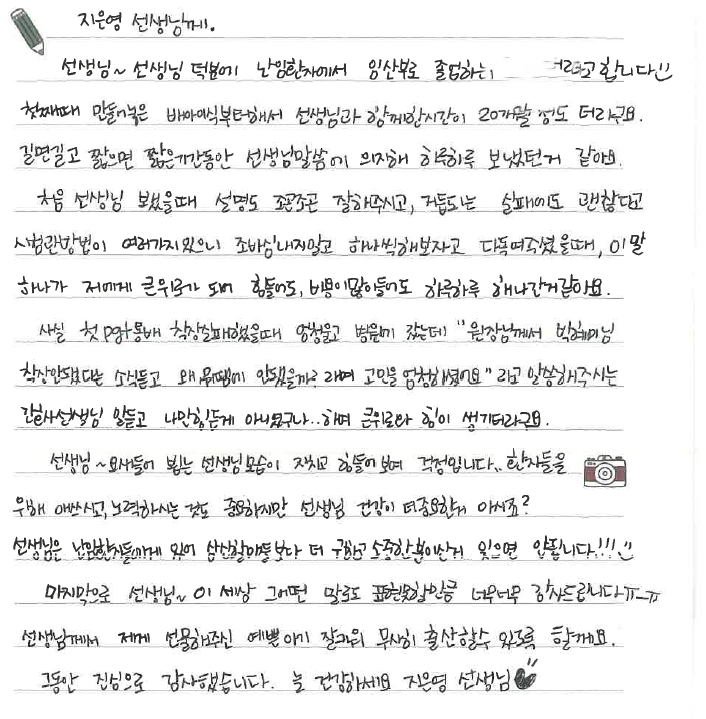 지은영 선생님께.
선생님~ 선생님 덕분에 난임환자에서 임산부로 졸업하는 합니다!!
첫째때 만들어놓은 배아이식부터해서 선생님과 함께한시간이 20개월 정도 되더라구요.
길면길고 짧으면 짧은기간동안 선생님말씀에 의지해 하루하루 보냈던거 같아요.
처음 선생님 뵀었을때 설명도 조곤조곤 잘해주시고, 거듭되는 실패에도 괜찮다고
시험관방법이 여러가지있으니 조바심내지말고 하나씩해보자고 다독여주셨을때, 이말
하나가 저에게 큰위로가 되어 힘들어도, 비용이많이들어도 하루하루 해나간거같아요.
사실 첫 pgt통배 착상실패했을때 엉청울고 병원에 갔는데 "원장님께서 박혜미님
착상안됐다는 소식듣고 왜 때문에 안됐을까? 라며 고민을 엄청하셨어요" 라고 말씀해주시는
간호사선생님 말듣고 나만힘든게 아니었구나.. 하며 큰위로와 힘이 생기더라구요.
선생님~ 요새들어 뵙는 선생님모습이 지치고 힘들어보여 걱정입니다.. 환자들을
위해 애쓰시고, 노력하시는 것도 중요하지만 선생님 건강이 더중요한거 아시죠?
선생님은 난임환자들에게 있어 삼신할머들보다 더 귀하고 소중한분이신거 잊으면 안됩니다!!!
마지막으로 선생님~ 이 세상 그어떤 말로도 표현못할만큼 너무너무 감사드립니다ㅠ-ㅠ
선생님께서 제게 선물해주신 예쁜아기 잘키워 무사히 출산할수 있도록 할게요.
그동안 진심으로 감사했습니다. 늘 건강하세요 지은영 선생님